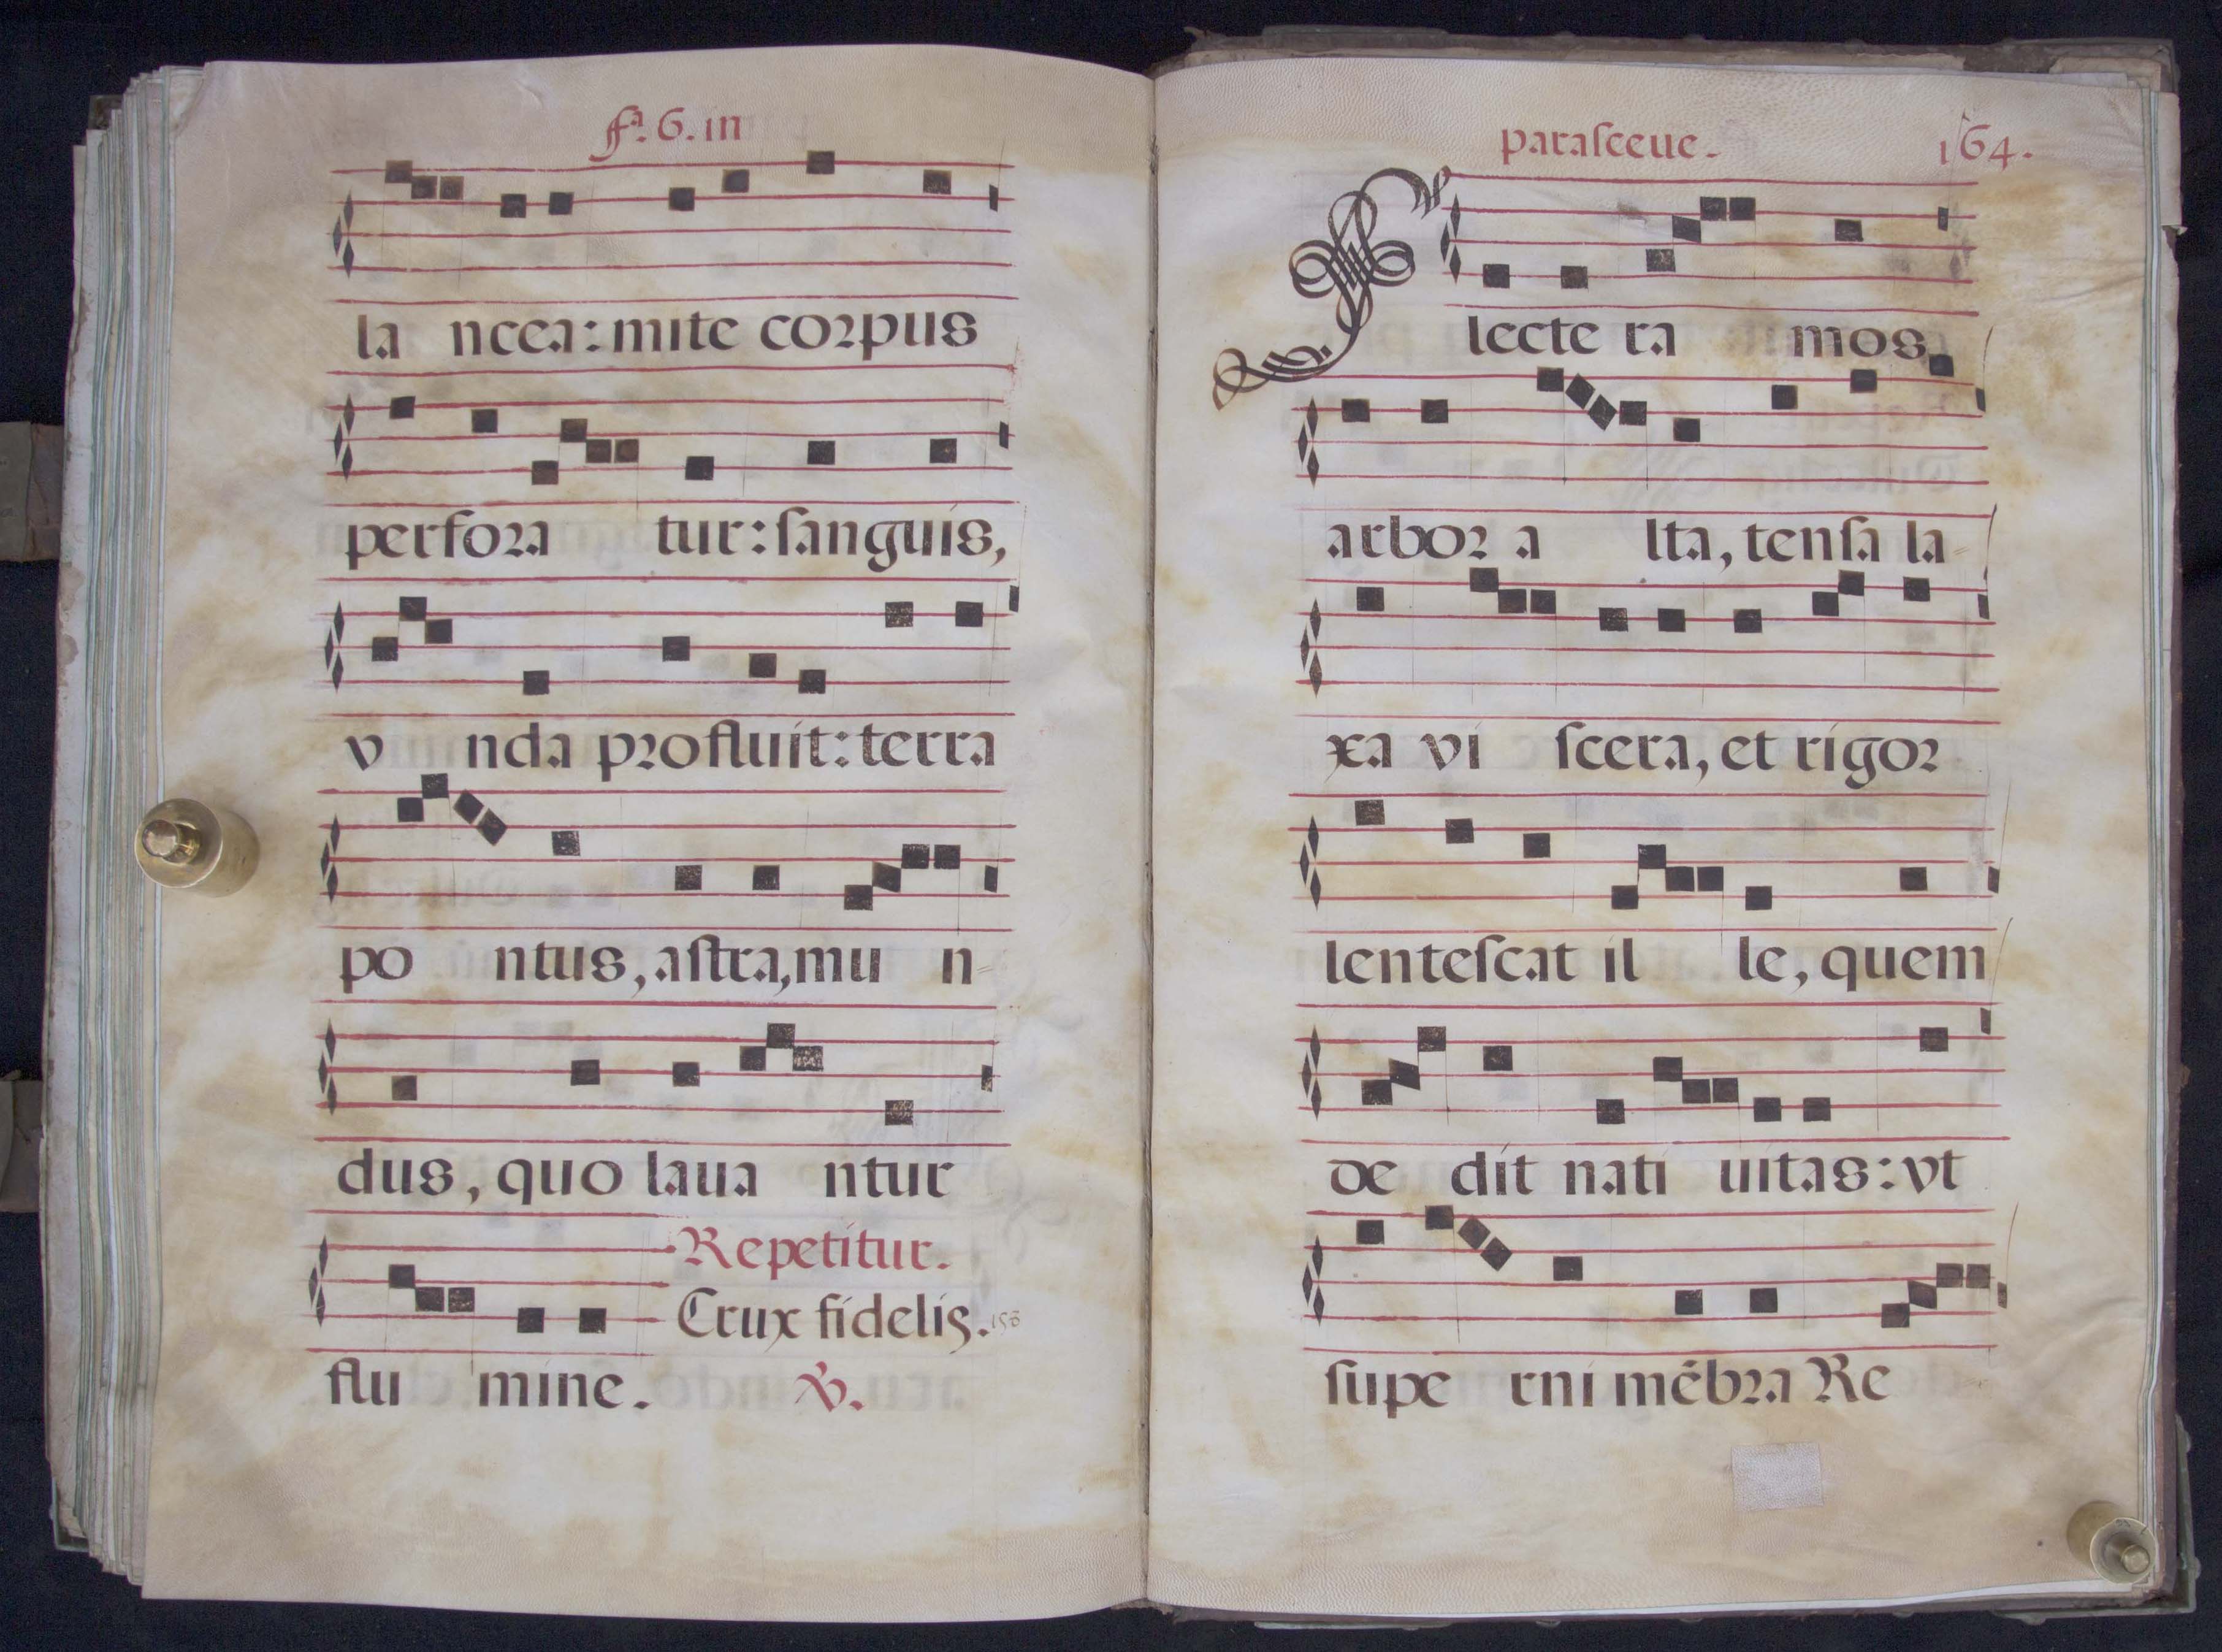 fª. 6. in
la ncea: mite corpus
perfora tur: ſanguis,
v nda profluit: terra
po ntus, aſtra, mu n-
dus, quo laua ntur
Repetitur.
Crux fidelis.
flu mine. ℣.
paraſceue. 164.
Flecte ra mos
arbor a lta, tenſa la-
xa vi ſcera, et rigor
lenteſcat il le, quem
de dit nati uitas: vt
ſupe rni mēbra Re